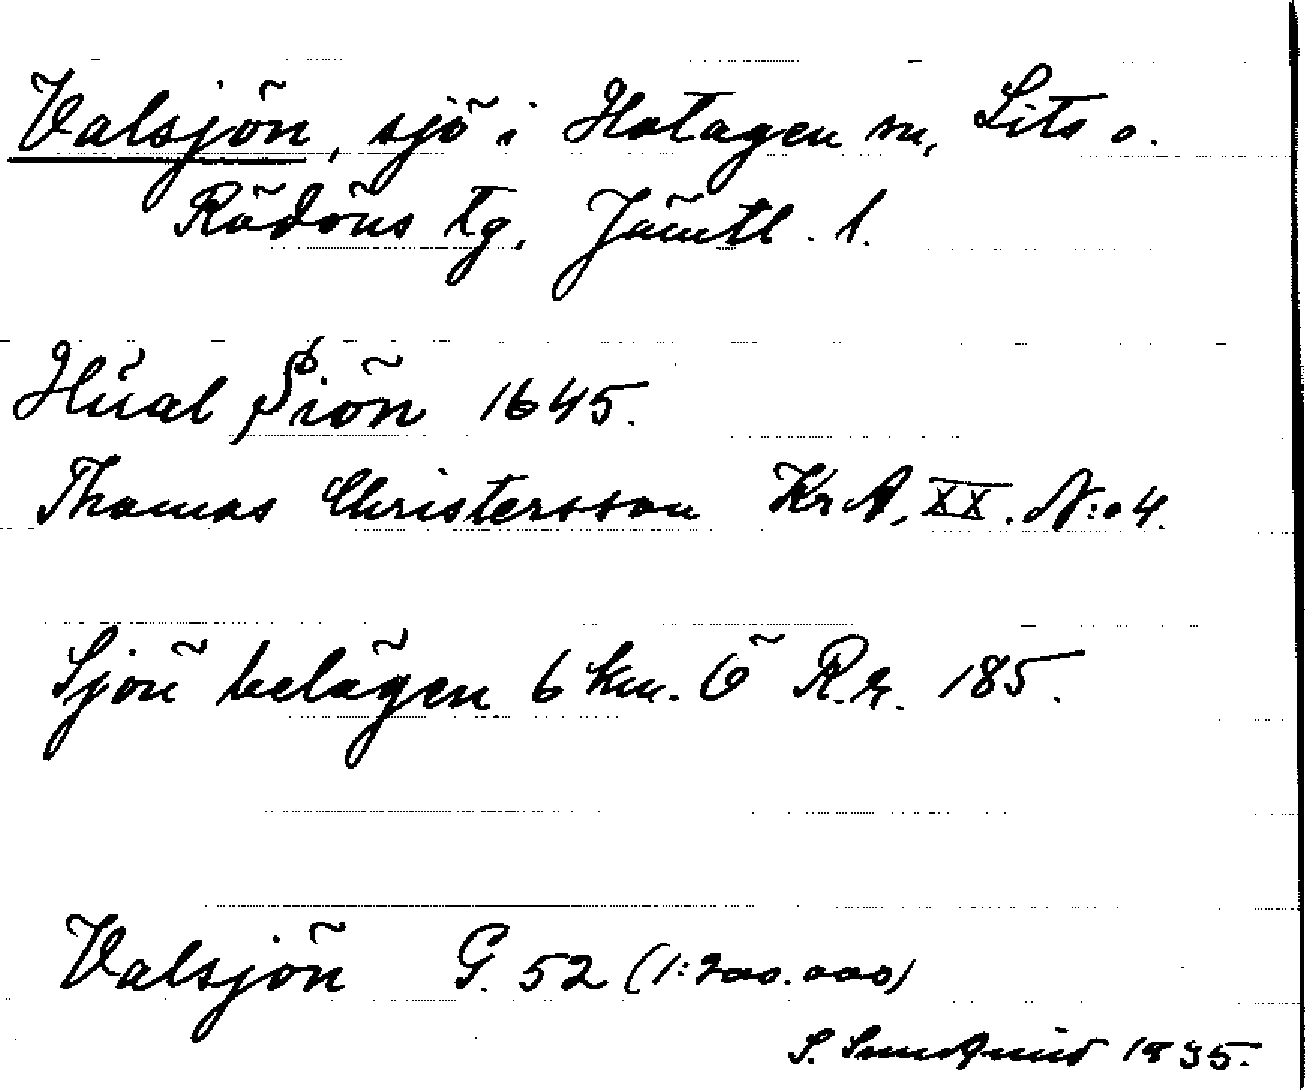 Valsjön, sjö i Hotagen sn, Lits o.
Rödöns tg. Jämtl. l.
Húal Siön 1645.
Thomas Christersson KrA, XX. N:o 4.
Sjön belägen 6 km. Ö R.r. 185.
Valsjön G. 52 (1:200.000)
S. 1935.